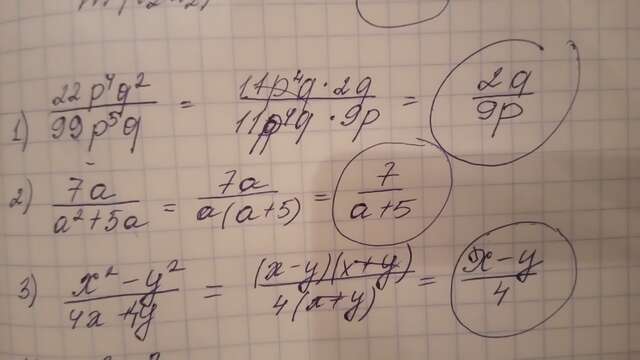 1) 22p⁴q² / 99p⁵q = 11p⁴q · 2q / 11p⁴q · 9p = 2q / 9p
2) 7a / a² + 5a = 7a / a(a+5) = 7 / a+5
3) x² - y² / 4x + 4y = (x-y)(x+y) / 4(x+y) = x-y / 4